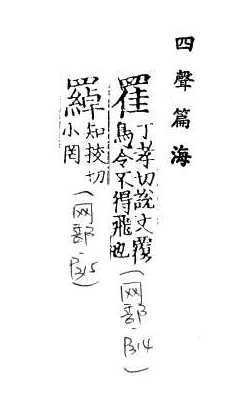 四聲篇海
䍜丁孝切說文覆
鳥令不得飛也(网部·P314)
𦌊知挍切
小罔(网部·P315)